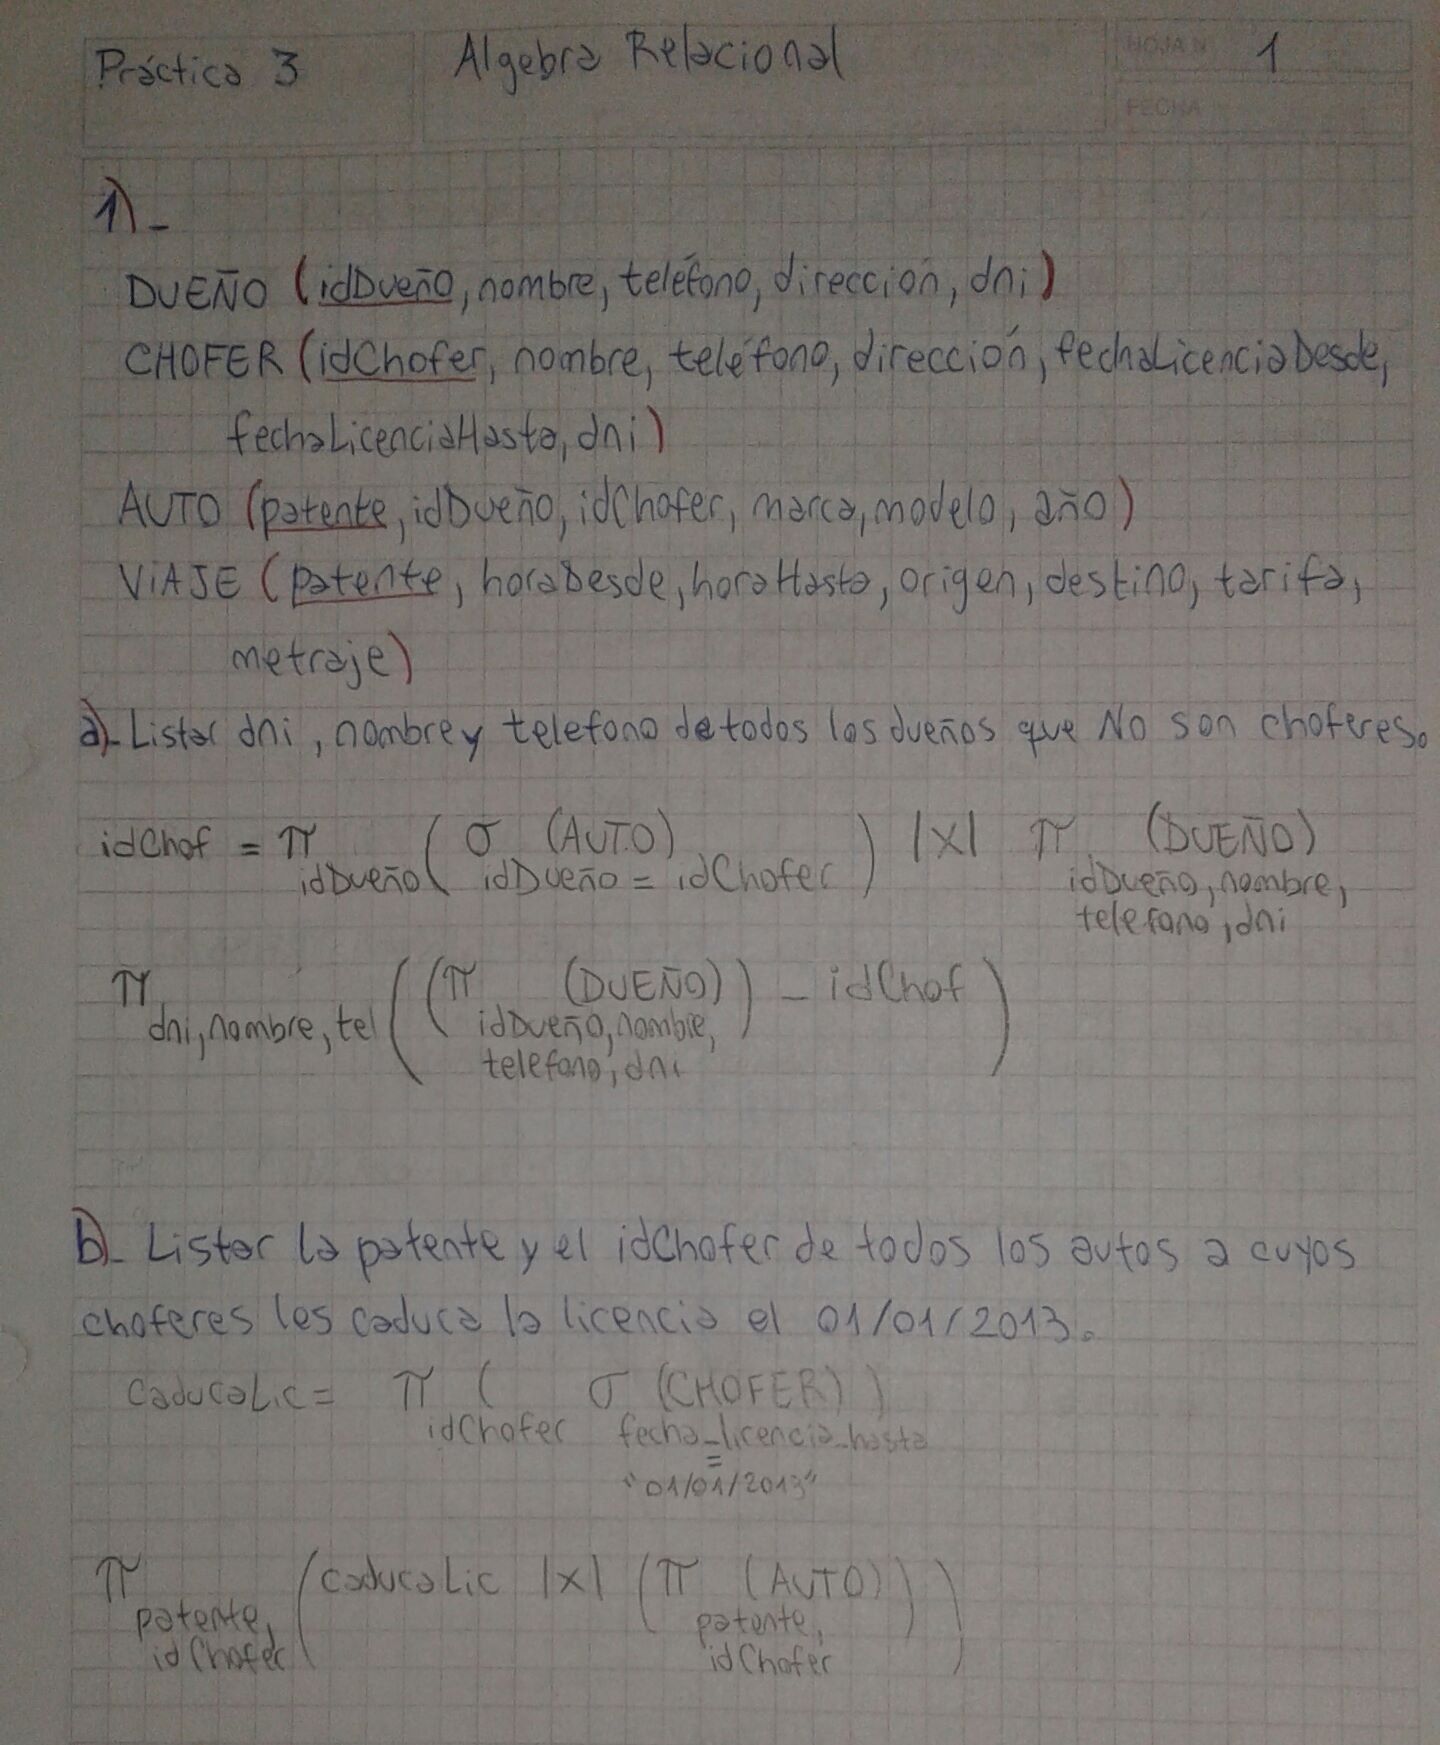 Práctica 3
Algebra Relacional
HOJA N 1
FECHA
1)-
DUEÑO (idDueño, nombre, teléfono, dirección, dni)
CHOFER (idChofer, nombre, teléfono, dirección, fechaLicenciaDesde,
fechaLicenciaHasta, dni)
AUTO (patente, idDueño, idChofer, marca, modelo, año)
VIAJE (patente, horaDesde, horaHasta, origen, destino, tarifa,
metraje)
a)- Listar dni, nombre y telefono de todos los dueños que NO son choferes.
idChof = π ( σ (AUTO) ) |X| π (DUEÑO)
idDueño idDueño = idChofer idDueño, nombre,
telefono, dni
π ( ( π (DUEÑO) ) - idChof )
dni, nombre, tel idDueño, nombre,
telefono, dni
b)- Listar la patente y el idChofer de todos los autos a cuyos
choferes les caduca la licencia el 01/01/2013.
caducaLic = π ( σ (CHOFER) )
idChofer fecha_licencia_hasta
=
"01/01/2013"
π ( caducaLic |X| ( π (AUTO) ) )
patente, patente,
idChofer idChofer